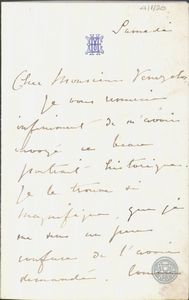 4/1/20
Samedi
Cher Monsieur Venizelos
Je vous remercie
infiniment de m'avoir
envoyé ce beau
portrait historique.
Je le trouve si
magnifique, que j'ai
me suis un peu
confuse de l'avoir
demandé.